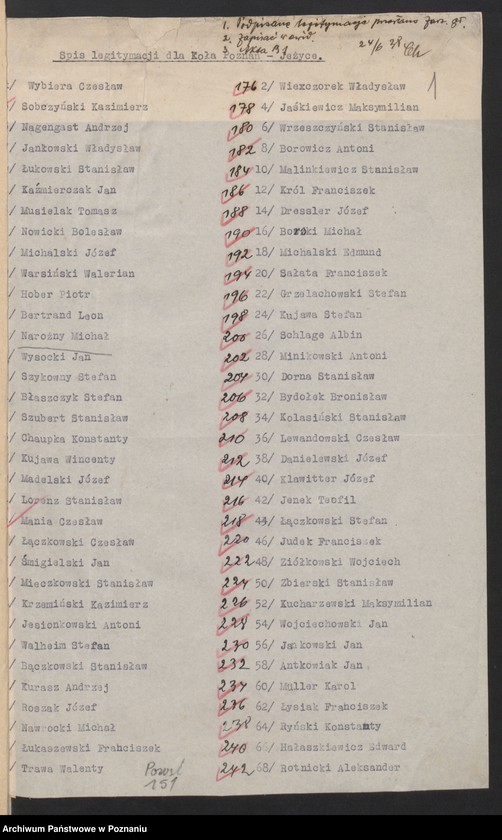 1. Podpisane legitymacje
2. Zapisać w ewid.
3. Akta BJ
24/6 38
Spis legitymacji dla Koła Poznań - Jeżyce.
1
/ Wybiera Czesław 176 2/ Wiexczorek Władysław
/ Sobczyński Kazimierz 178 4/ Jaśkiewicz Maksymilian
/ Nagengast Andrzej 180 6/ Wrzeszczyński Stanisław
/ Jankowski Władysław 182 8/ Borowicz Antoni
/ Łukowski Stanisław 184 10/ Malinkiewicz Stanisław
/ Kaźmierczak Jan 186 12/ Król Franciszek
/ Musielak Tomasz 188 14/ Dressler Józef
/ Nowicki Bolesław 190 16/ Borski Michał
/ Michalski Józef 192 18/ Michalski Edmund
/ Warsiński Walerian 194 20/ Sałata Franciszek
/ Hober Piotr 196 22/ Grzelachowski Stefan
/ Bertrand Leon 198 24/ Kujawa Stefan
/ Narożny Michał 200 26/ Schlage Albin
/ Wysocki Jan 202 28/ Minikowski Antoni
/ Szykowny Stefan 204 30/ Dorna Stanisław
/ Błaszczyk Stefan 206 32/ Bydołek Bronisław
/ Szubert Stanisław 208 34/ Kolasiński Stanisław
/ Chaupka Konstanty 210 36/ Lewandowski Czesław
/ Kujawa Wincenty 212 38/ Danielewski Józef
/ Madelski Józef 214 40/ Klawitter Józef
/ Lorenz Stanisław 216 42/ Jenek Teofil
/ Mania Czesław 218 44/ Łączkowski Stefan
/ Łączkowski Czesław 220 46/ Judek Franciszek
/ Śmigielski Jan 222 48/ Ziółkowski Wojciech
/ Mieczkowski Stanisław 224 50/ Zbierski Stanisław
/ Krzemiński Kazimierz 226 52/ Kucharzewski Maksymilian
/ Jesionkowski Antoni 228 54/ Wojciechowski Jan
/ Walheim Stefan 230 56/ Jankowski Jan
/ Bączkowski Stanisław 232 58/ Antkowiak Jan
/ Kurasz Andrzej 234 60/ Müller Karol
/ Roszak Józef 236 62/ Łysiak Franciszek
/ Nawrocki Michał 238 64/ Ryński Konstanty
/ Łukaszewski Franciszek 240 66/ Hałaszkiewicz Edward
/ Trawa Walenty 242 68/ Rotnicki Aleksander
151
Archiwum Państwowe w Poznaniu